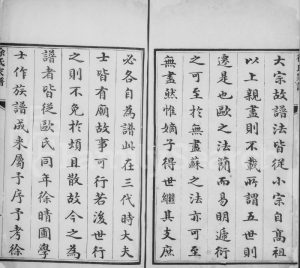 大宗故譜法皆從小宗自高祖
以上親盡則不載所謂五世則
遷是也歐之法簡而易明遞衍
之可至於無盡蘇之法亦可至
無盡然惟嫡子得世繼其支庶
必各自為譜此在三代時大夫
士皆有廟故事可行若後世行
之則不免於煩且散故今之為
譜者皆從歐氏同年徐晴圃學
士作族譜成來屬予序予考徐